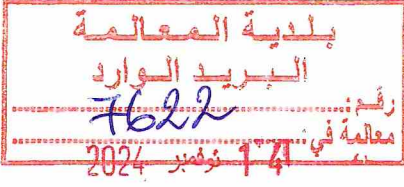 بلدية المعالمة
البريد الوارد
رقم : 7622
معالمة في : 14 نوفمبر 2024